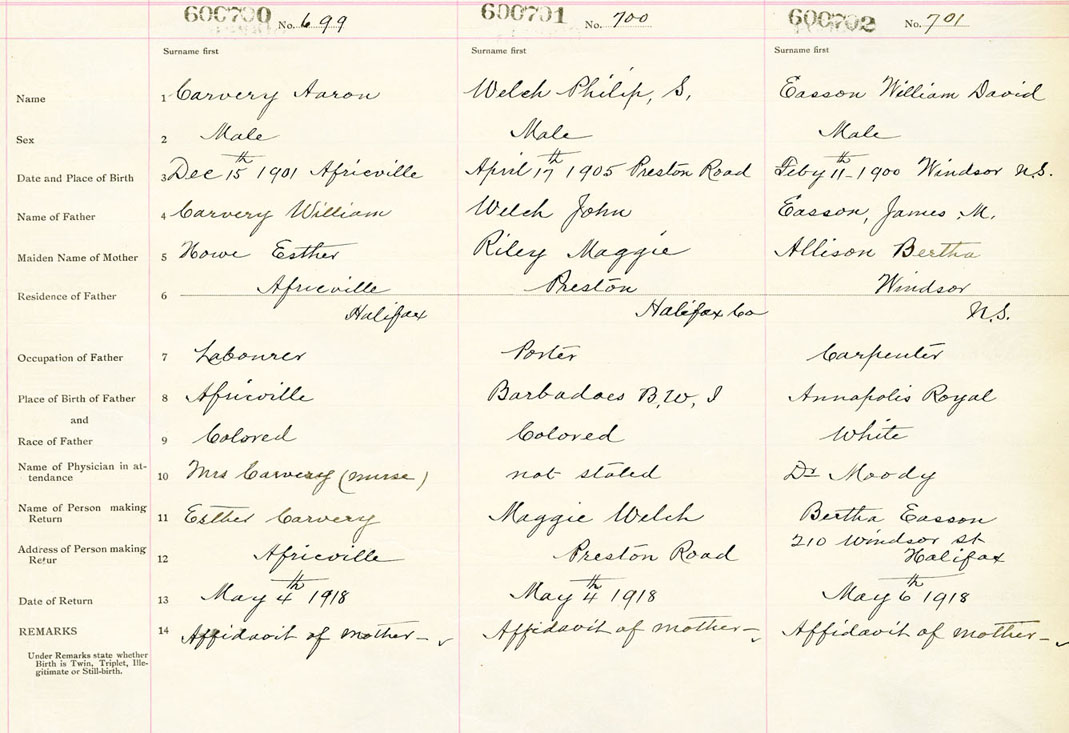 600700 No. 699 600701 No. 700 600702 No. 701
Surname first Surname first Surname first
Name 1 Carvery Aaron Welch Philip, S, Easson William David
Sex 2 Male Male Male
Date and Place of Birth 3 Dec 15th 1901 Africville April 17th 1905 Preston Road Feby 11th 1900 Windsor N.S.
Name of Father 4 Carvery William Welch John Easson, James M.
Maiden Name of Mother 5 Howe Esther Riley Maggie Allison Bertha
Residence of Father 6 Africville Preston Windsor
Halifax Halifax Co N.S.
Occupation of Father 7 Labourer Porter Carpenter
Place of Birth of Father 8 Africville Barbadoes B,W, I Annapolis Royal
and
Race of Father 9 Colored Colored White
Name of Physician in at-
tendance 10 Mrs Carvery (nurse) not stated Dr Moody
Name of Person making
Return 11 Esther Carvery Maggie Welch Bertha Easson
Address of Person making 210 Windsor st
Retur 12 Africville Preston Road Halifax
Date of Return 13 May 4th 1918 May 4th 1918 May 6th 1918
REMARKS 14 Affidavit of mother- Affidavit of mother- Affidavit of mother-
Under Remarks state whether
Birth is Twin, Triplet, Ille-
gitimate or Still-birth.